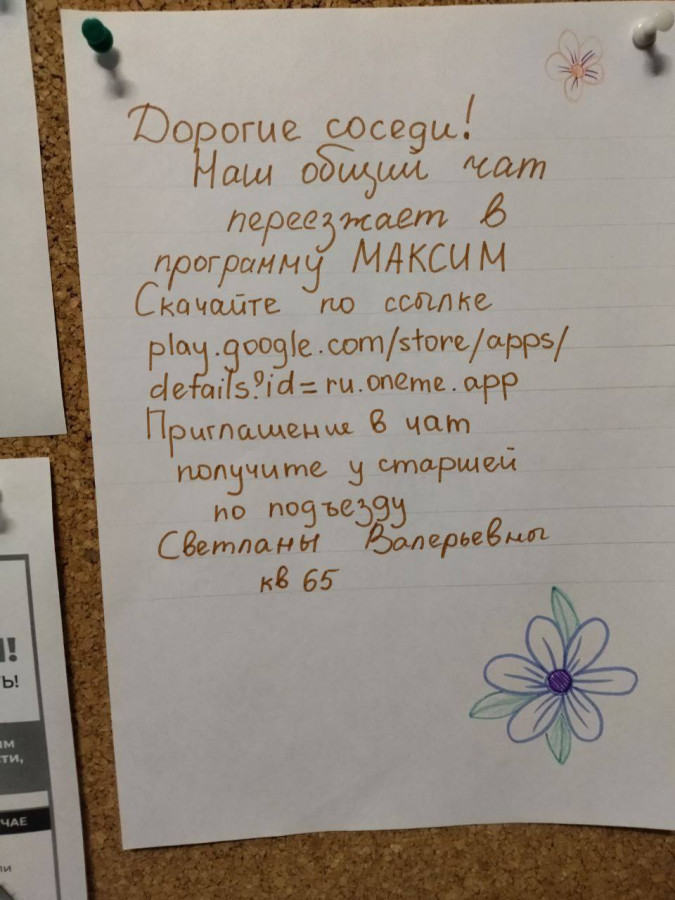 Дорогие соседи!
Наш общий чат
переезжает в
программу МАКСИМ
Скачайте по ссылке
play.google.com/store/apps/
details?id=ru.oneme.app
Приглашение в чат
получите у старшей
по подъезду
Светланы Валерьевны
кв 65
!
Ь!
ЫМ
ТИ,
ЧАЕ
ЛИ